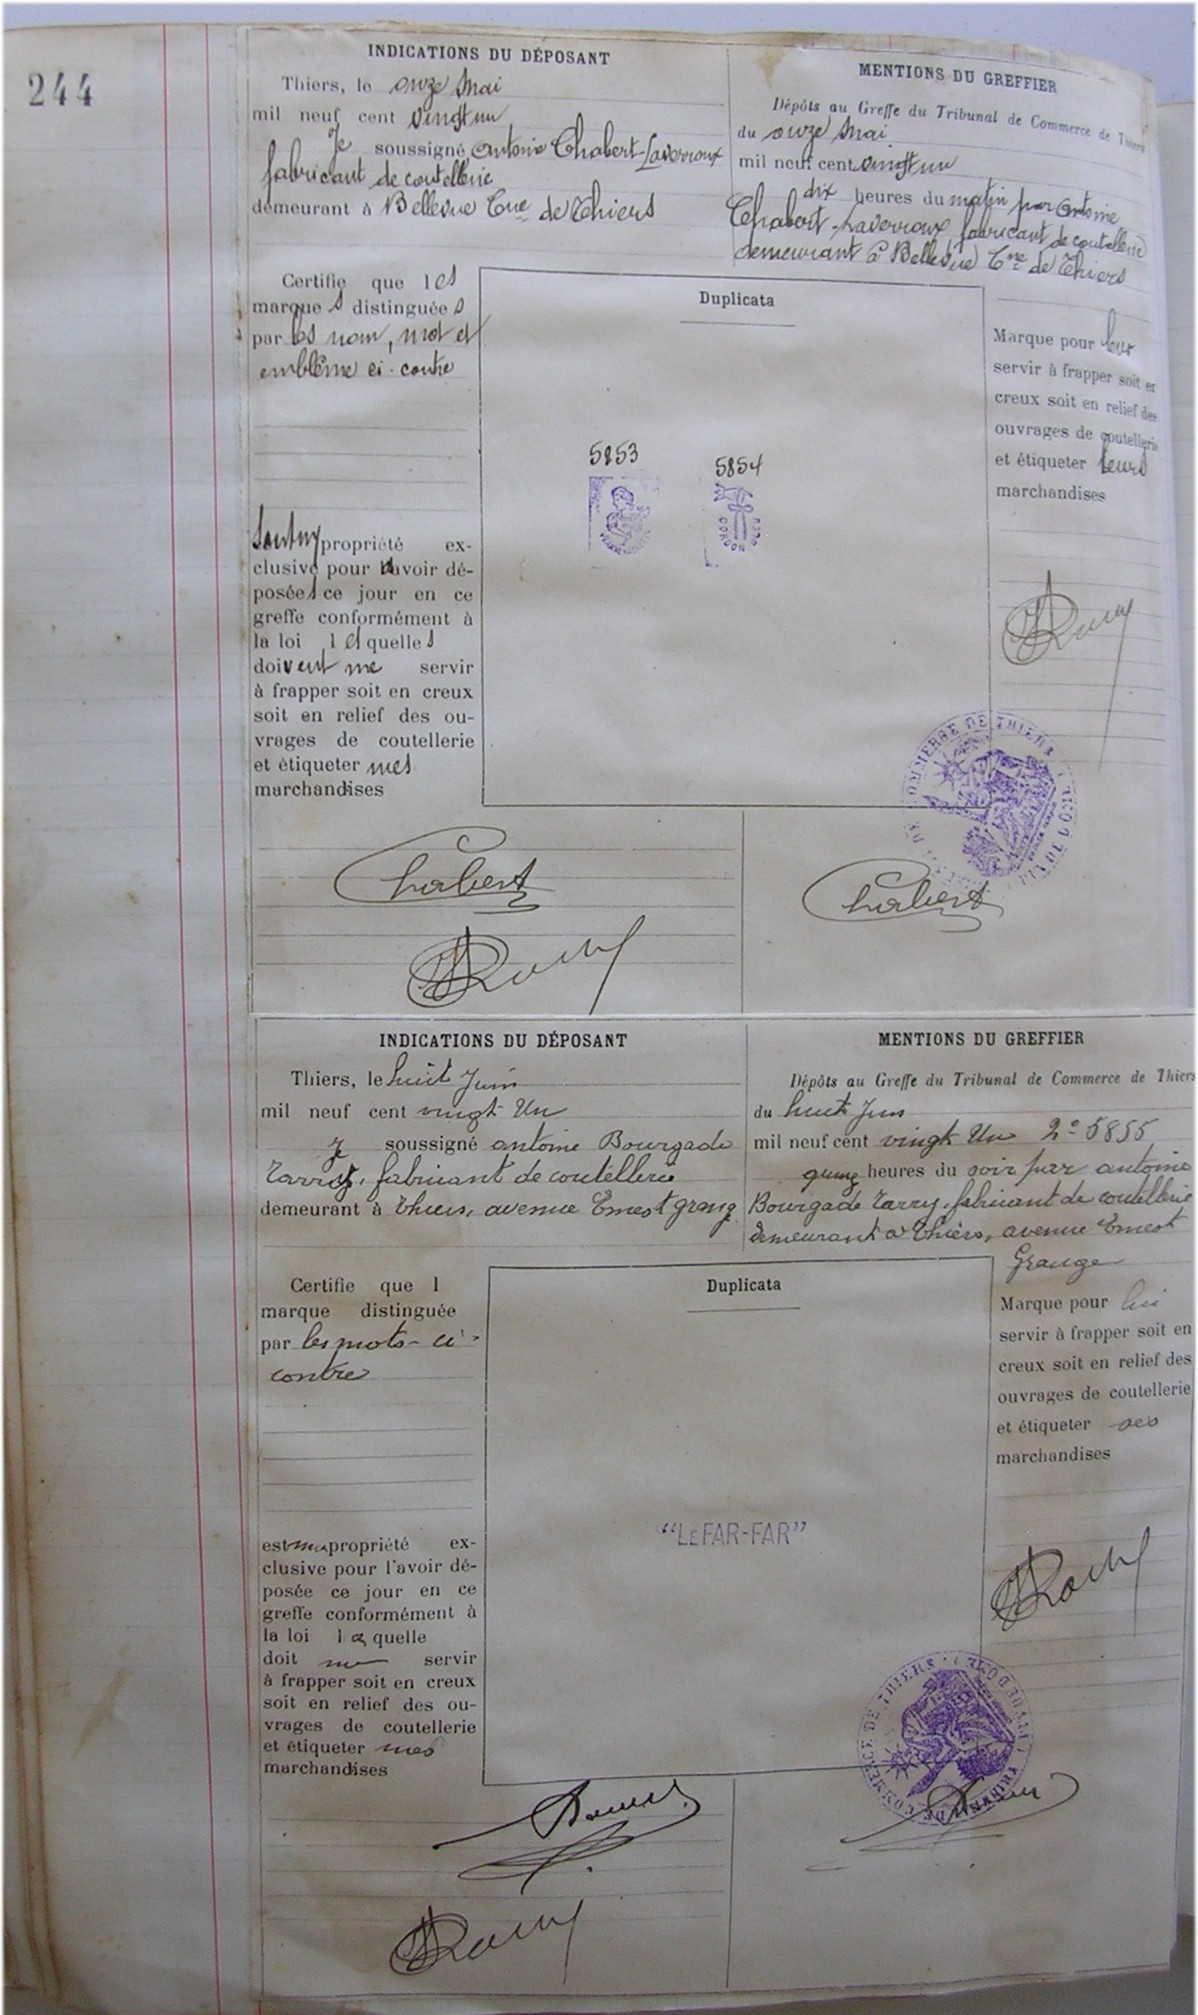 244
INDICATIONS DU DÉPOSANT
Thiers, le onze Mai
mil neuf cent vingt un
Je soussigné, Antoine Chabert-Laverroux
fabricant de coutellerie
demeurant à Bellevue Cne de Thiers
MENTIONS DU GREFFIER
Dépôts au Greffe du Tribunal de Commerce de Thiers
du onze Mai
mil neuf cent vingt un
dix heures du matin par Antoine
Chabert-Laverroux fabricant de coutellerie
demeurant à Bellevue Cne de Thiers
Certifie que les
marques distinguées
par les nom, mot et
emblême ci-contre
propriété ex-
clusive pour l'avoir dé-
posées ce jour en ce
greffe conformément à
la loi lesquelles
doivent me servir
à frapper soit en creux
soit en relief des ou-
vrages de coutellerie
et étiqueter mes
marchandises
Duplicata
5853
5854
CORDON
Marque pour leur
servir à frapper soit en
creux soit en relief des
ouvrages de coutellerie
et étiqueter leurs
marchandises
COMMERCE DE THIERS
Chabert
Chabert
INDICATIONS DU DÉPOSANT
Thiers, le huit Juin
mil neuf cent vingt Un
Je soussigné antoine Bourgade
Tarry, fabricant de coutellerie
demeurant à Thiers, avenue Ernest Grange
MENTIONS DU GREFFIER
Dépôts au Greffe du Tribunal de Commerce de Thiers
du huit Juin
mil neuf cent vingt Un 5855
heures du soir par antoine
Bourgade Tarry, fabricant de coutellerie
demeurant à Thiers, avenue Ernest
Grange
Certifie que l
marque distinguée
par les mots ci-
contre
est ma propriété ex-
clusive pour l'avoir dé-
posée ce jour en ce
greffe conformément à
la loi laquelle
doit me servir
à frapper soit en creux
soit en relief des ou-
vrages de coutellerie
et étiqueter mes
marchandises
Duplicata
"LE FAR-FAR"
Marque pour lui
servir à frapper soit en
creux soit en relief des
ouvrages de coutellerie
et étiqueter ses
marchandises
COMMERCE DE THIERS